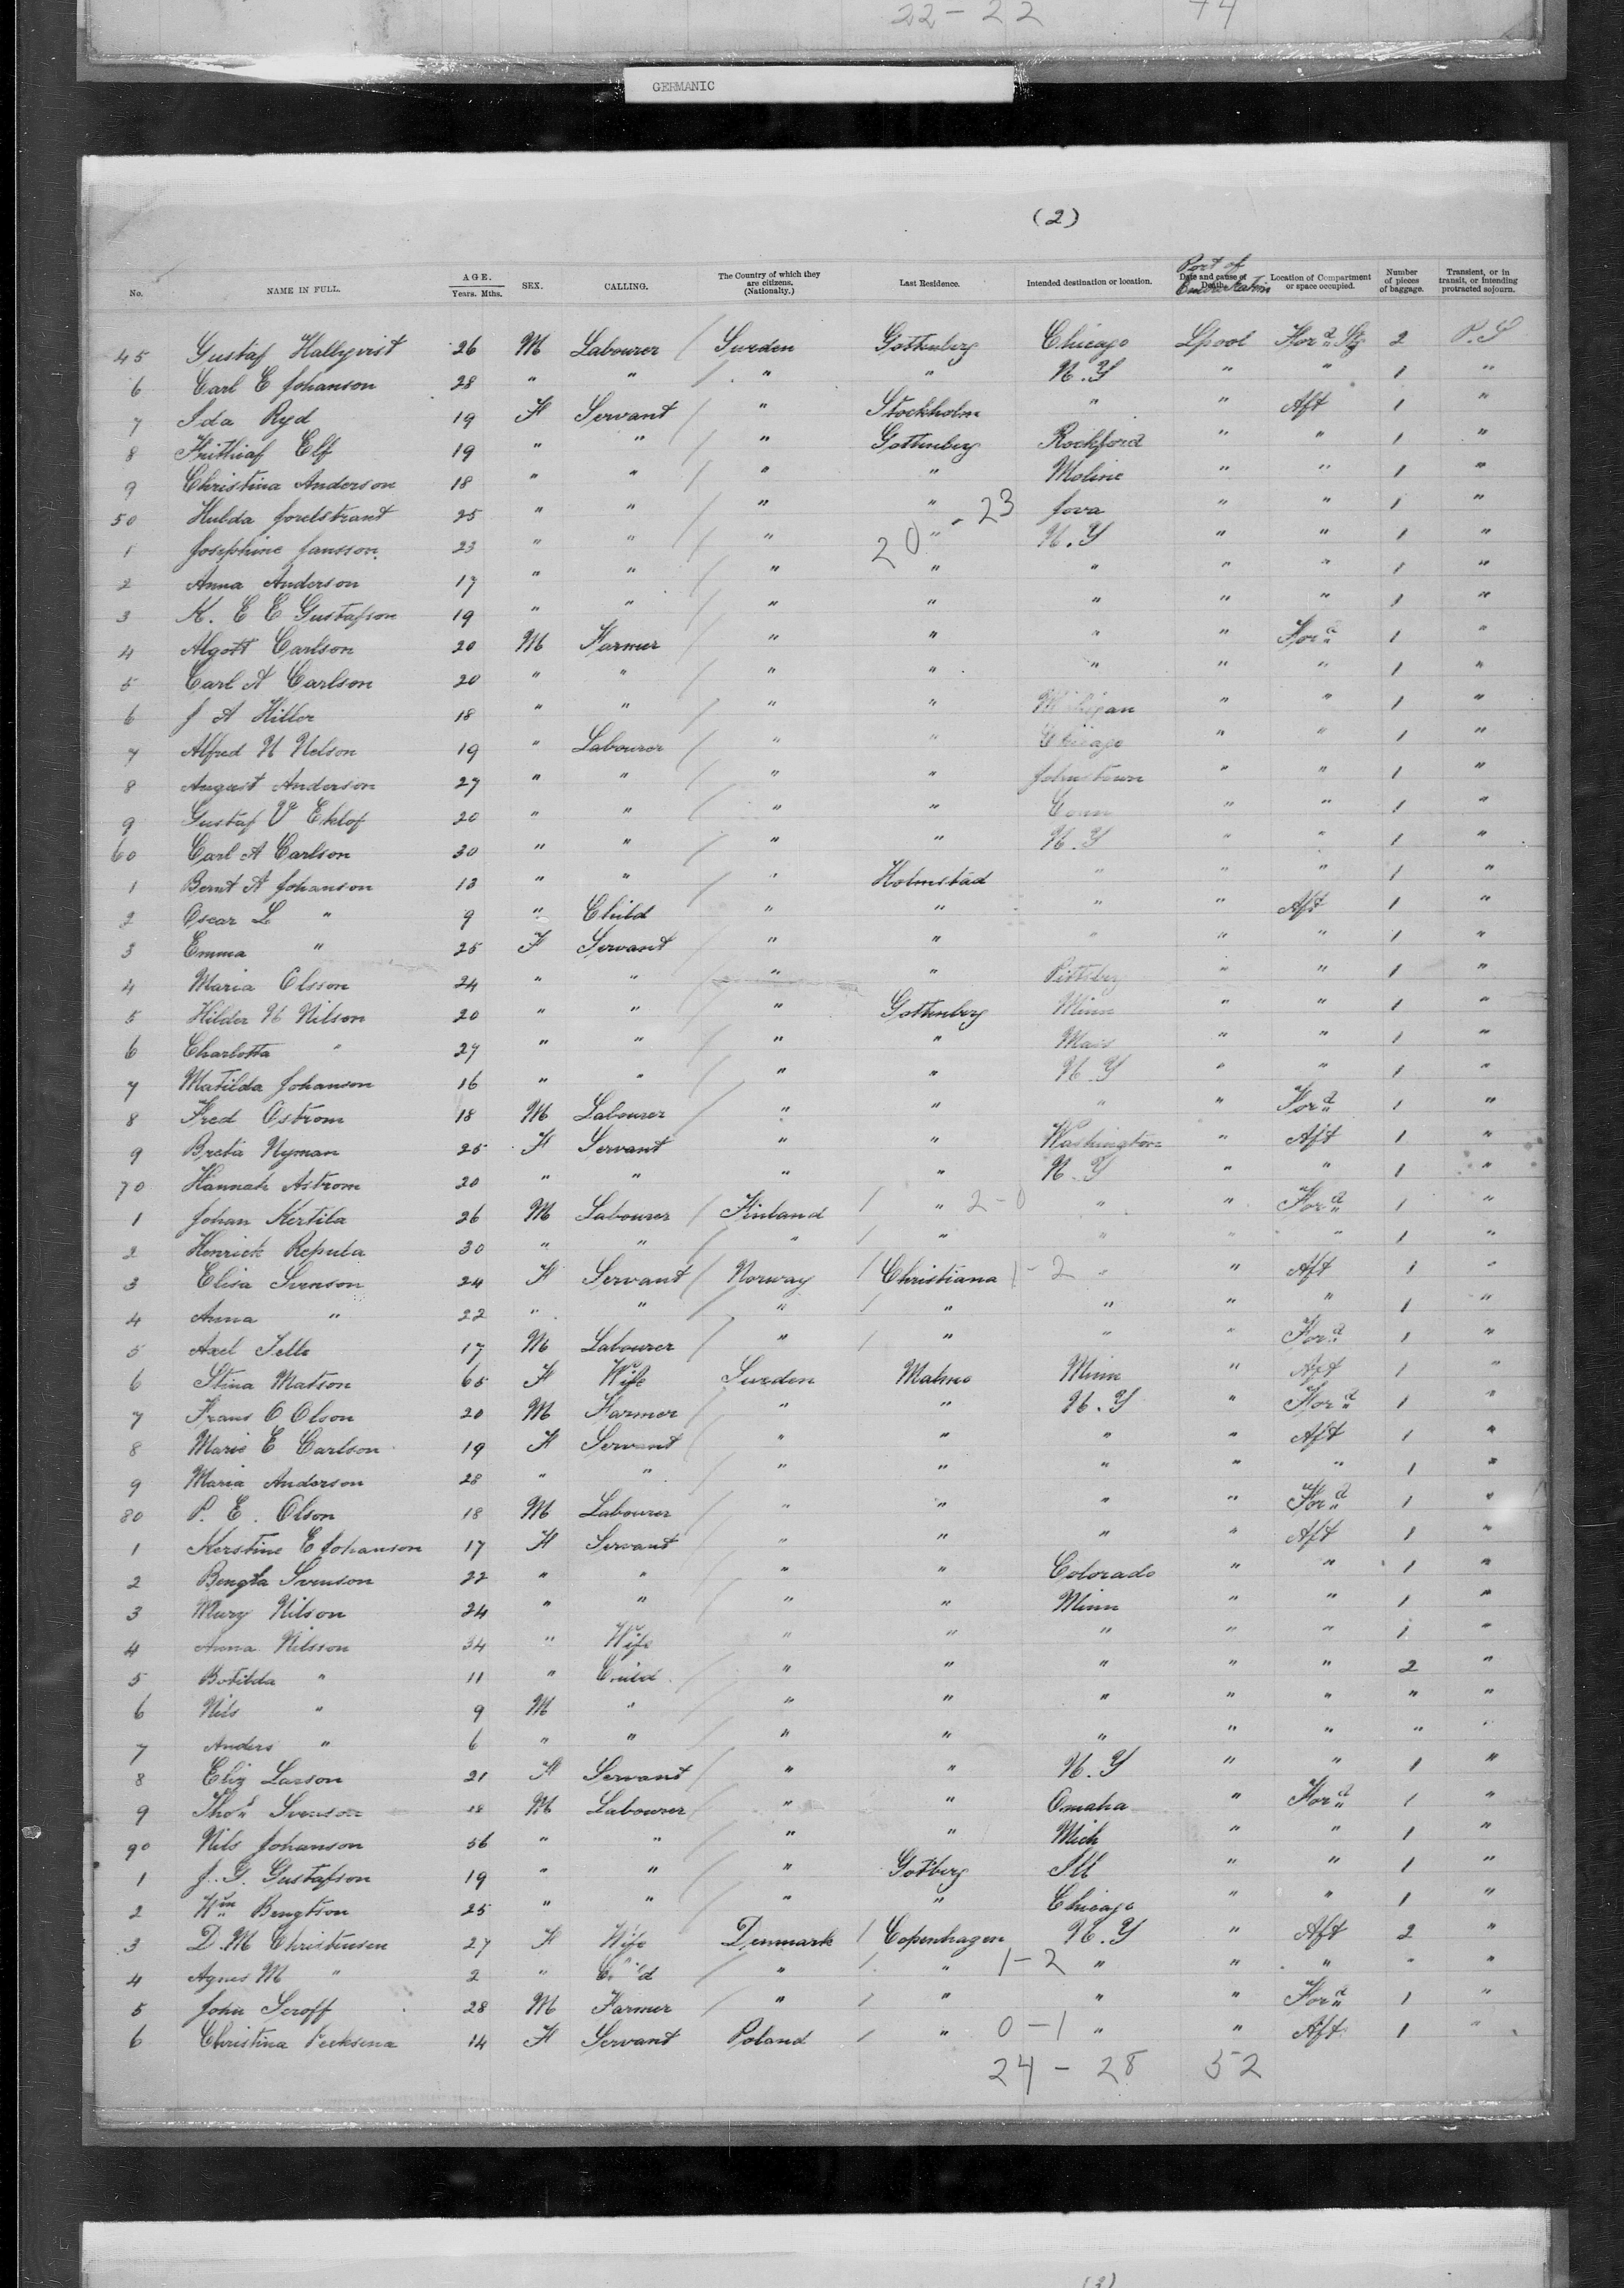 22 - 22 44
GERMANIC
(2)
No. NAME IN FULL. AGE. Years. Mths. SEX. CALLING. The Country of which they are citizens. (Nationalty.) Last Residence. Intended destination or location. Date and cause of Death. Port of Embarkation Location of Compartment or space occupied. Number of pieces of baggage. Transient, or in transit, or intending protracted sojourn.
45 Gustaf Hallqvist 26 M Labourer / Sweden Gottenberg Chicago Lpool For'd Stg 2 P.S
6 Carl E Johanson 28 " " / " " N.Y " " 1 "
7 Ida Ryd 19 F Servant / " Stockholm " " Aft 1 "
8 Frithiaf Elf 19 " " / " Gottenberg Rockford " " 1 "
9 Christina Anderson 18 " " / " " Moline " " 1 "
50 Hulda Jorelstrant 25 " " / " " 20 - 23 Jova " " 1 "
1 Josephine Jansson 23 " " / " " N.Y " " 1 "
2 Anna Anderson 17 " " / " " " " " 1 "
3 K. E E Gustafson 19 " " / " " " " " 1 "
4 Algott Carlson 20 M Farmer / " " " " For'd 1 "
5 Carl A Carlson 20 " " / " " " " " 1 "
6 J A Hiller 18 " " / " " Michigan " " 1 "
7 Alfred N Nelson 19 " Labourer / " " Chicago " " 1 "
8 August Anderson 27 " " / " " Johnstown " " 1 "
9 Gustaf V Eklof 20 " " / " " Conn " " 1 "
60 Carl A Carlson 30 " " / " " N.Y " " 1 "
1 Bernt A Johanson 13 " " / " Holmstad " " " 1 "
2 Oscar L " 9 " Child / " " " " Aft 1 "
3 Emma " 25 F Servant / " " " " " 1 "
4 Maria Olsson 24 " " / " " Pittsberg " " 1 "
5 Hilder N Nilson 20 " " / " Gottenberg Minn " " 1 "
6 Charlotta " 27 " " / " " Mass " " 1 "
7 Matilda Johanson 16 " " / " " N.Y " " 1 "
8 Fred Ostrom 18 M Labourer / " " " " For'd 1 "
9 Breta Nyman 25 F Servant / " " Washington " Aft 1 "
70 Hannah Astrom 20 " " / " " N.Y " " 1 "
1 Johan Kertila 26 M Labourer / Finland / " 2-0 " " For'd 1 "
2 Henrick Repula 30 " " / " / " " " " 1 "
3 Elisa Svenson 24 F Servant / Norway / Christiana 1-2 " " Aft 1 "
4 Anna " 22 " " / " / " " " " 1 "
5 Axel Telle 17 M Labourer / " / " " " For'd 1 "
6 Stina Matson 65 F Wife Sweden Malmo Minn " Aft 1 "
7 Frans O Olson 20 M Farmer / " " N.Y " For'd 1 "
8 Marie E Carlson 19 F Servant / " " " " Aft 1 "
9 Maria Anderson 28 " " / " " " " " 1 "
80 P. E. Olson 18 M Labourer / " " " " For'd 1 "
1 Kerstine E Johanson 17 F Servant / " " " " Aft 1 "
2 Bengta Svenson 22 " " / " " Colorado " " 1 "
3 Mary Nilson 24 " " / " " Minn " " 1 "
4 Anna Nilsson 34 " Wife / " " " " " 1 "
5 Botilda " 11 " Child / " " " " " 2 "
6 Nils " 9 M " / " " " " " " "
7 Anders " 6 " " / " " " " " " "
8 Eliz Larson 21 F Servant / " " N.Y " " 1 "
9 Thos Svenson M Labourer / " " Omaha " For'd 1 "
90 Nils Johanson 56 " " / " " Mich " " 1 "
1 J. G. Gustafson 19 " " / " Gotberg Ill " " 1 "
2 Wm Bengtson 25 " " / " " Chicago " " 1 "
3 D. M Christensen 27 F Wife Denmark / Copenhagen N.Y " Aft 2 "
4 Agnes M " 2 " Child / " / " 1-2 " " " " "
5 John Scroff 28 M Farmer / " / " " " For'd 1 "
6 Christina 14 F Servant Poland / " 0-1 " " Aft 1 "
24 - 28 52
(3)